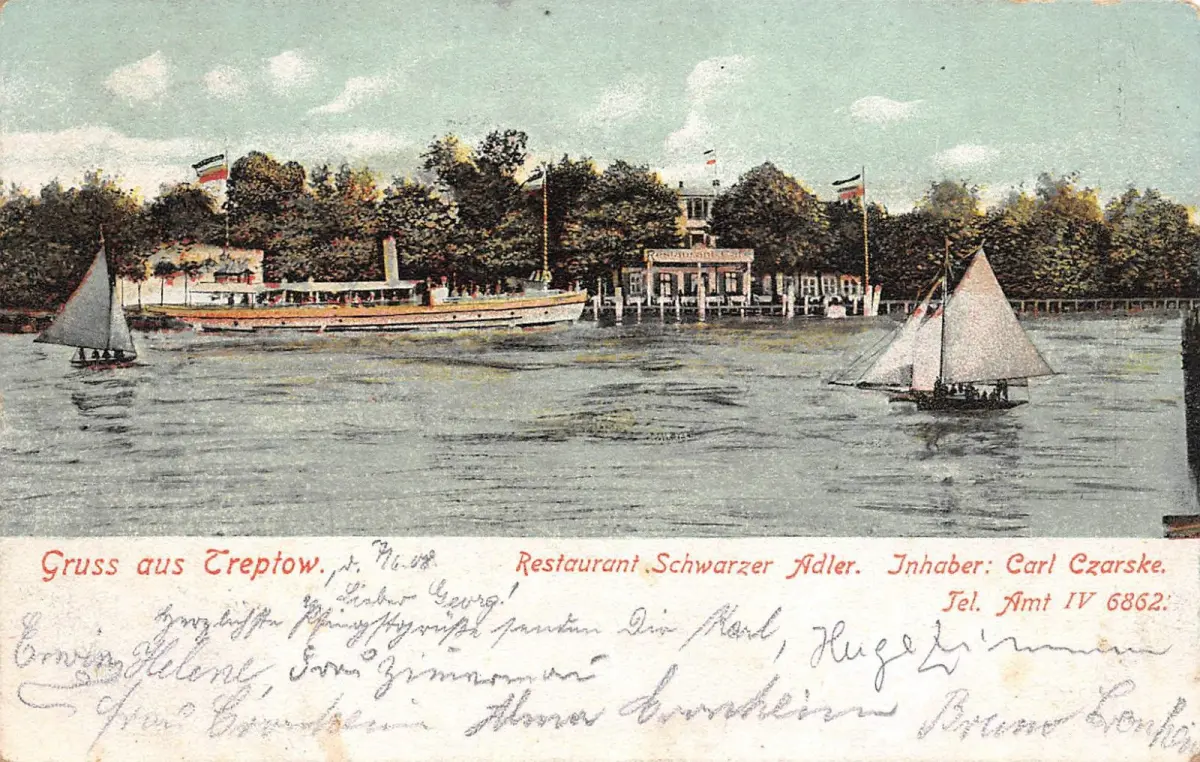 Restaurant & Café
Gruss aus Treptow., d. 7/6.08.
Restaurant Schwarzer Adler. Inhaber: Carl Czarske.
Tel. Amt IV 6862.
Lieber Georg!
Herzlichste Pfingstgrüße senden Dir Karl, Hugo Zimmermann
Erwin Helene, Frau Zimmermann
Frau Cronheim Alma Cronheim Bruno